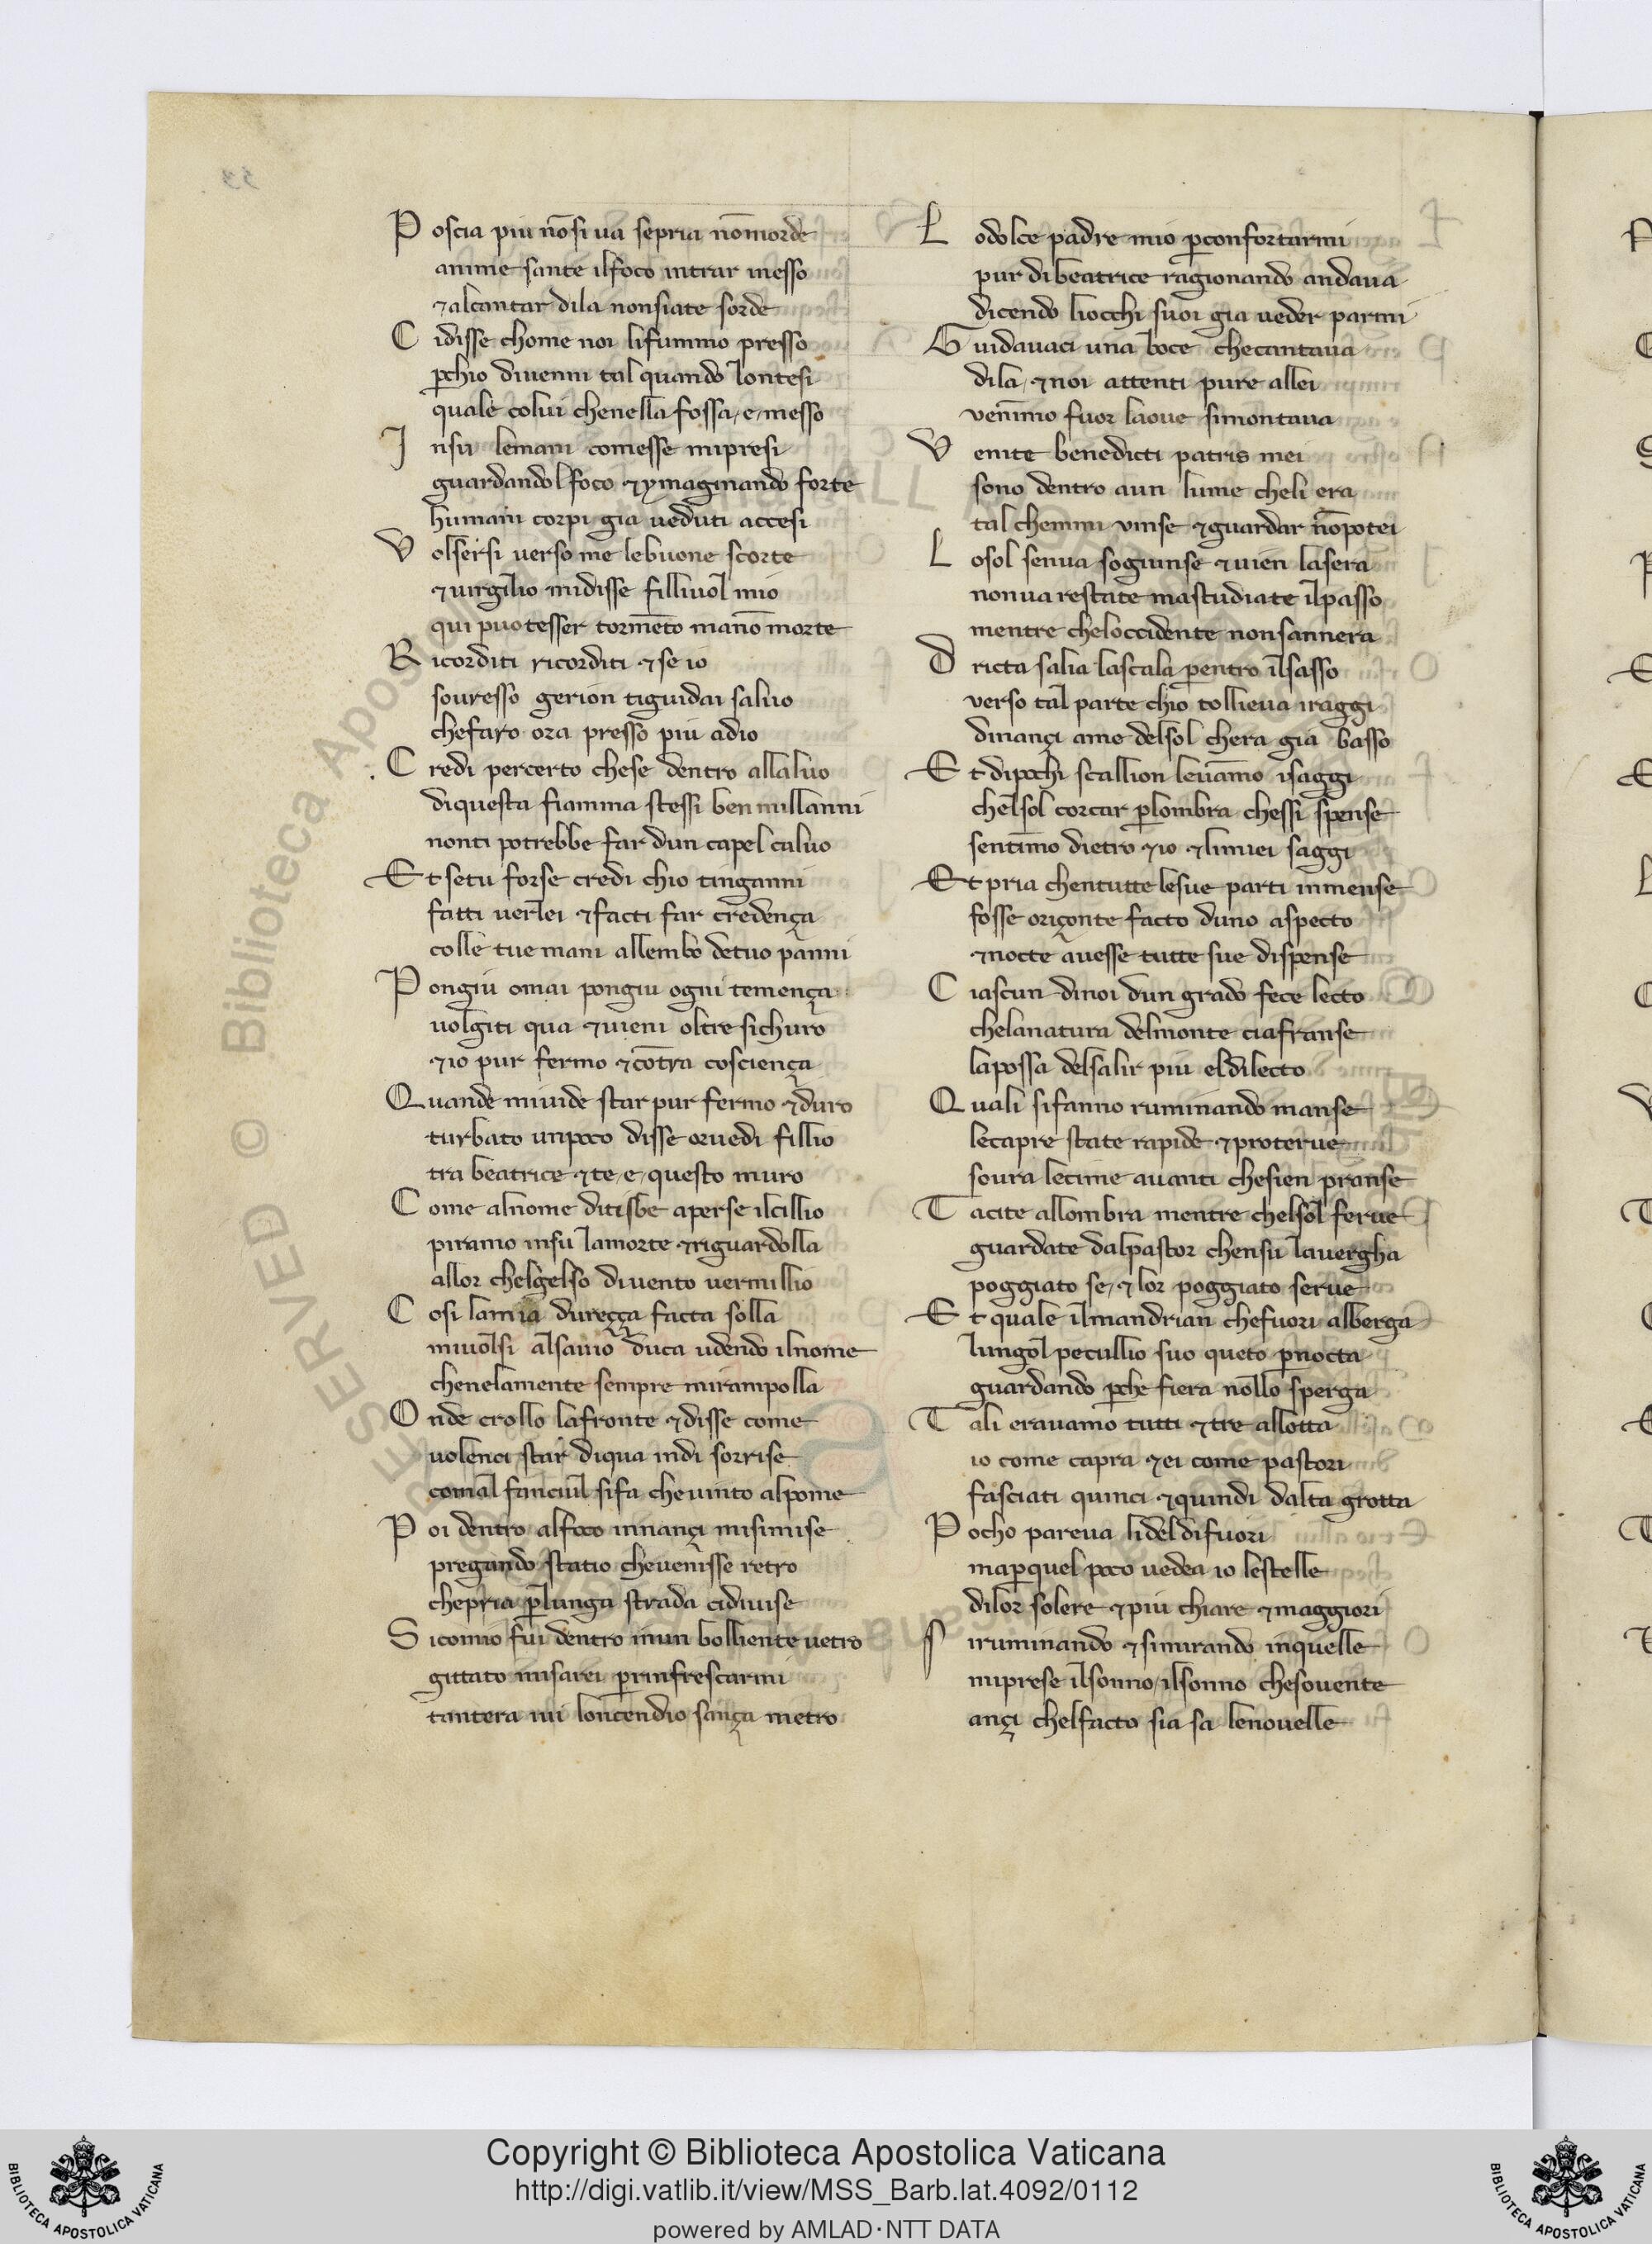 Poscia piu nõsi ua sepria nõmorde
anime sante ilfoco intrar messo
⁊alcantar dila nonsiate sorde
Cidisse chome noi lifummo presso
ꝑchio diuenni tal quando lontesi
quale colui chenella fossa e messo
Insu lemani comesse mipresi
guardandol foco ⁊ymaginando forte
humani corpi gia ueduti accesi
Volsersi verso me lebuone scorte
⁊uirgilio midisse filliuol mio
qui puotesser tormẽto manõ morte
Ricorditi ricorditi ⁊se io
souresso gerion tiguidai saluo
chefaro ora presso piu adio
Credi percerto chese dentro allaluo
diquesta fiamma stessi ben millanni
nonti potrebbe far dun capel caluo
Et setu forse credi chio tinganni
fatti uerlei ⁊facti far credença
colle tue mani allembo detuo panni
Pongiu omai pongiu ogni temença
uolgiti qua ⁊uieni oltre sichuro
⁊io pur fermo ⁊cõtra cosciença
Quande miuide star pur fermo ⁊duro
turbato unpoco disse oruedi fillio
tra beatrice ⁊te e questo muro
Come alnome ditisbe aperse ilcillio
piramo insu lamorte ⁊riguardolla
allor chelgelso diuento uermillio
Cosi lamia dureçça facta solla
miuolsi alsauio duca udendo ilnome
chenelamente sempre mirampolla
Onde crollo lafronte ⁊disse come
uolenci star diqua indi sorrise
comal fanciul sifa cheuinto alpome
Poi dentro alfoco innançi misimise
pregando statio cheuenisse retro
chepria ꝑlunga strada cidiuise
Sicomio fui dentro inun bolliente uetro
gittato misarei ꝑrinfrescarmi
tantera iui loncendio sança metro
Lodolce padre mio ꝑconfortarmi
pur dibeatrice ragionando andaua
dicendo liocchi suoi gia ueder parmi
Guidauaci una boce checantaua
dila ⁊noi attenti pure allei
venĩmo fuor laoue simontaua
Venite benedicti patris mei
sono dentro aun lume cheli era
tal chemmi vinse ⁊guardar nõpotei
Losol senua sogiunse ⁊uien lasera
nonuarestate mastudiate ilpasso
mentre cheloccidente nonsannera
Dricta salia lascala pentro ilsasso
verso tal parte chio tollieua iraggi
dinançi ame delsol chera gia basso
Et dipochi scallion leuãmo isaggi
chelsol corcar ꝑlombra chessi spense
sentĩmo dietro ⁊io ⁊limiei saggi
Et pria chentutte lesue parti inmense
fosse oriçonte facto duno aspecto
⁊nocte auesse tutte sue dispense
Ciascun dinoi dun grado fece lecto
chelanatura delmonte ciafranse
lapossa delsalir piu eldilecto
Quali sifanno ruminando manse
lecapre state rapide ⁊proterue
soura lecime auanti chesien pranse
Tacite allombra mentre chelsol ferue
guardate dalpastor chensu lauergha
poggiato se ⁊ lor poggiato serue
Et quale ilmandrian chefuori alberga
lungol pecullio suo queto ꝑnocta
guardando ꝑche fiera nõllo sperga
Tali erauamo tutti ⁊tre allotta
io come capra ⁊ei come pastori
fasciati quinci ⁊quindi dalta grotta
Pocho pareua lideldifuori
maꝑquel poco uedea io lestelle
dilor solere ⁊piu chiare ⁊maggiori
Siruminando ⁊simirando inquelle
miprese ilsonno ilsonno chesouente
ançi chelfacto sia sa lenouelle
Copyright © Biblioteca Apostolica Vaticana
http://digi.vatlib.it/view/MSS_Barb.lat.4092/0112
powered by AMLAD·NTT DATA
BIBLIOTECA APOSTOLICA VATICANA
BIBLIOTECA APOSTOLICA VATICANA